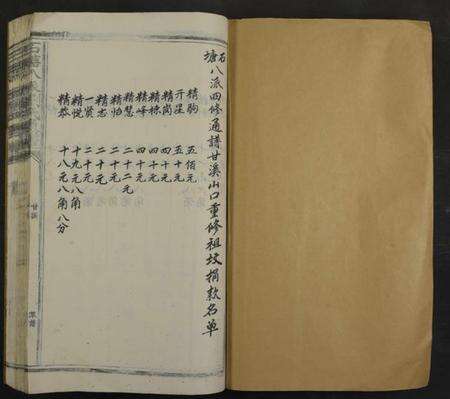 石塘八派四修通譜甘溪山口重修祖坟捐款名单
精駒 五佰元
亓星 五十元
精崗 四十元
精棟 四十元
精峰 四十元
精慧 二十二元
精怡 二十元
精志 二十元
一贤 二十元
精悦 十九元八角
精恭 十八元八角八分
甘溪